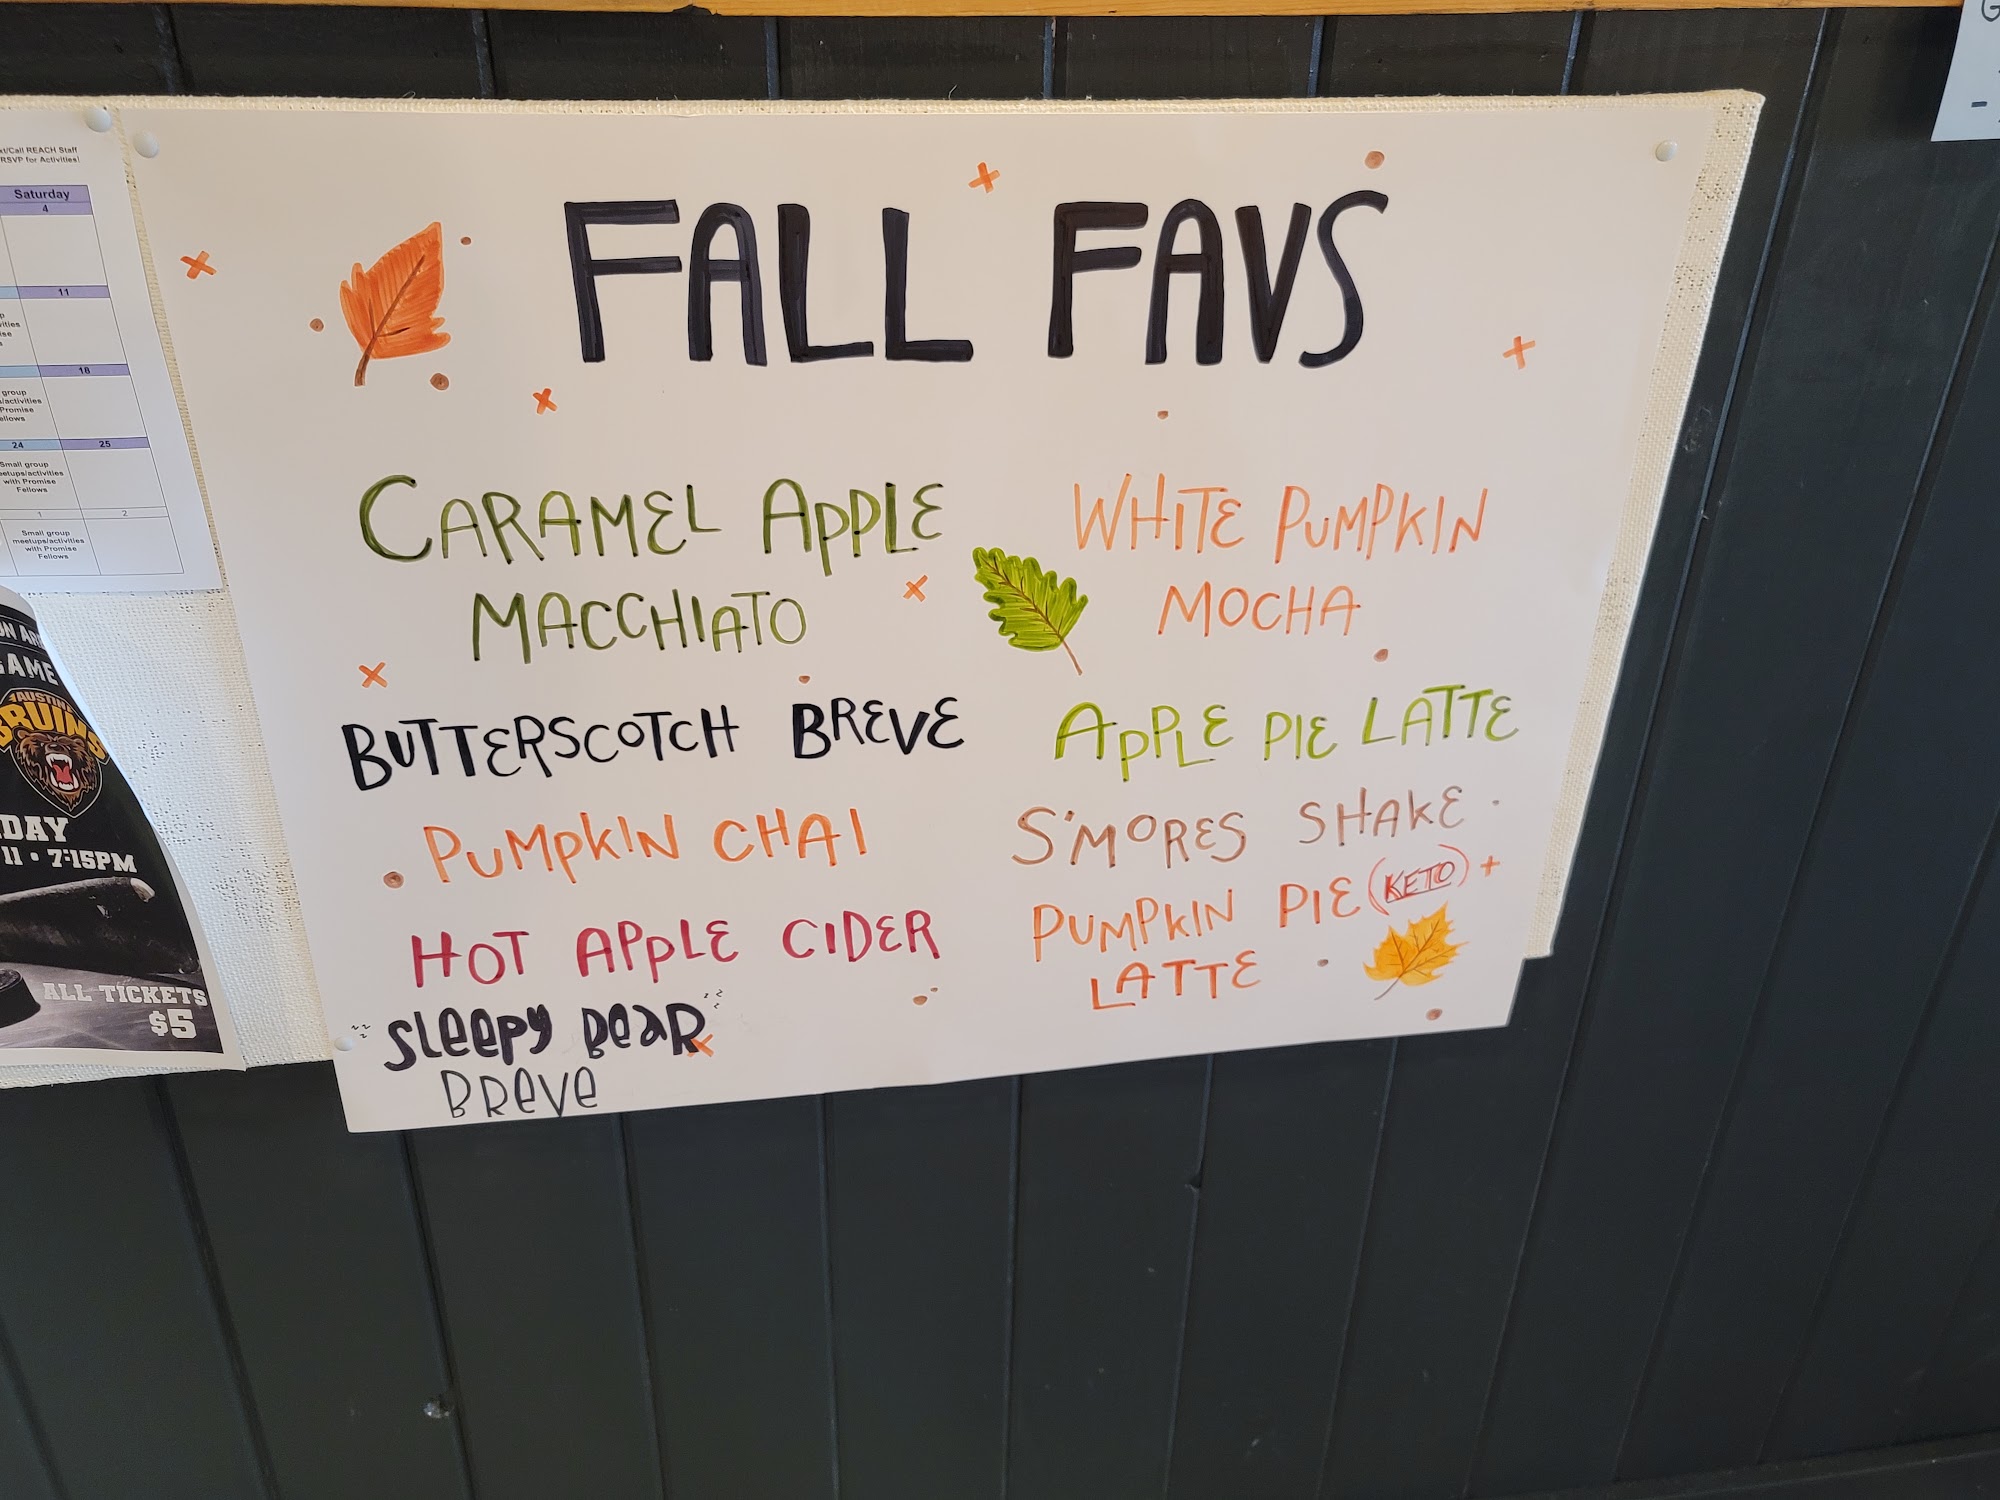 FALL FAVS
CARAMEL APPLE
MACCHIATO
BUTTERSCOTCH BREVE
PUMPKIN CHAI
HOT APPLE CIDER
SLEEPY BEAR
BREVE
WHITE PUMPKIN
MOCHA
APPLE PIE LATTE
S'MORES SHAKE
PUMPKIN PIE (KETO)
LATTE
Call REACH Staff
RSVP for Activities!
Saturday
4
11
18
group
Promise
24
25
Small group
with Promise
Fellows
1
2
Small group
meetups/activities
with Promise
Fellows
AUSTIN
BRUINS
11 • 7:15PM
ALL TICKETS
$5